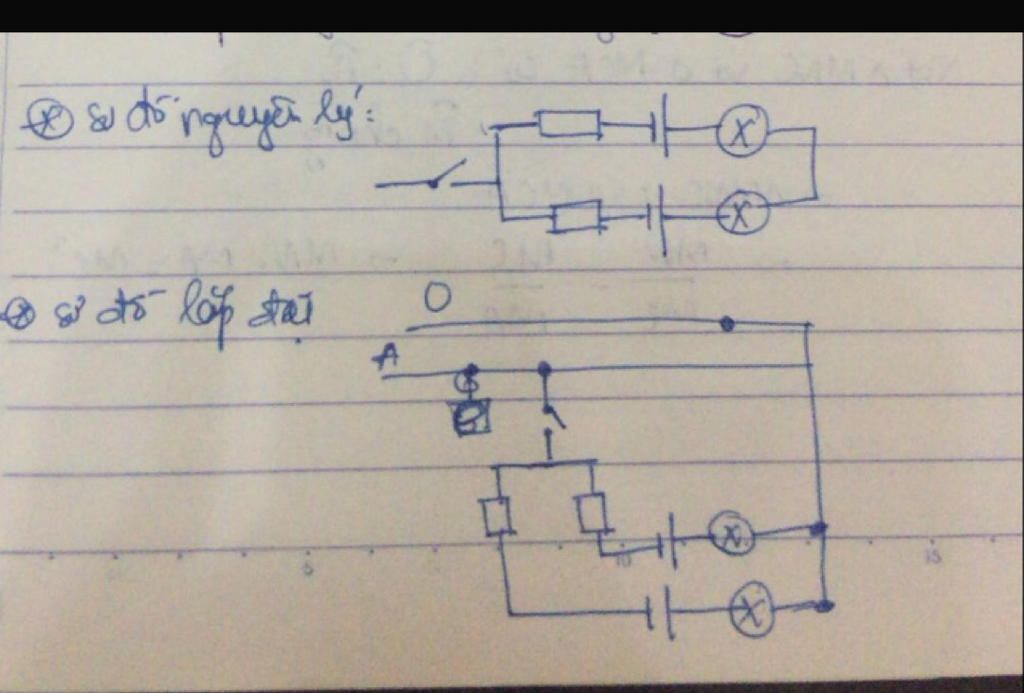 sơ đồ nguyên lý:
sơ đồ lắp đặt
O
A